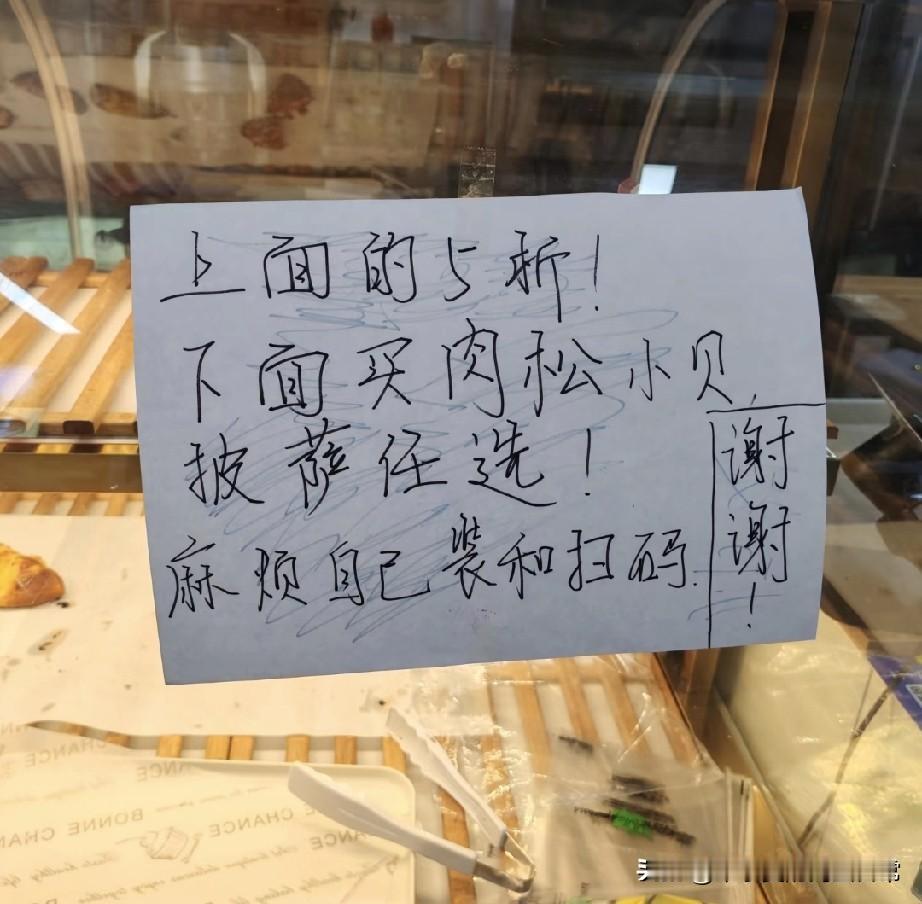 上面的5折!
下面买肉松小贝
披萨任选!
麻烦自己装和扫码.
谢谢!
BONNE CHANCE